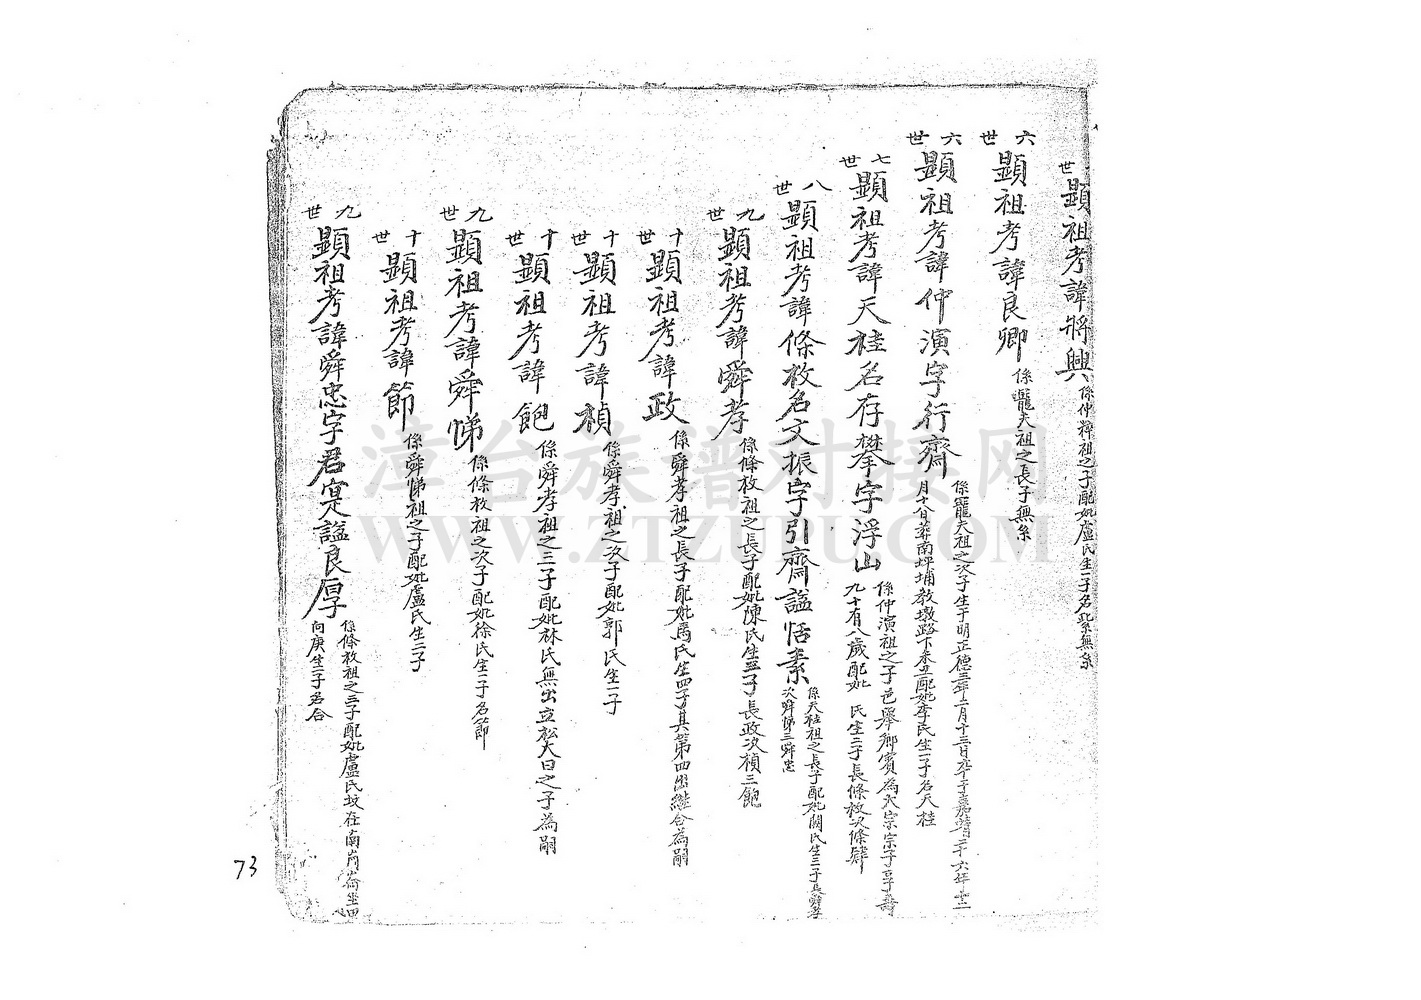 世 顯祖考諱將興 係仲擇祖之子配妣盧氏生一子名縶無系
六世 顯祖考諱良卿 係寵夫祖之長子無系
六世 顯祖考諱仲演字行齋 係寵夫祖之次子生于明正德三年二月十三日卒于嘉靖三十六年十二
月十八日葬南坪埔教墩路下 配妣李氏生一子名天桂
七世 顯祖考諱天桂名存攀字浮山 係仲演祖之子邑舉鄉賓為大宗宗子享壽
九十有八歲配妣 氏生二子長條枚次條肄
八世 顯祖考諱條枚名文振字引齋諡恬素 係天桂祖之長子配妣闕氏生三子長舜孝
次舜悌三舜忠
九世 顯祖考諱舜孝 係條枚祖之長子配妣陳氏生三子長政次禎三飽
十世 顯祖考諱政 係舜孝祖之長子配妣馬氏生四子其第四出繼合為嗣
十世 顯祖考諱禎 係舜孝祖之次子配妣郭氏生一子
十世 顯祖考諱飽 係舜孝祖之三子配妣林氏無出立松大曰之子為嗣
九世 顯祖考諱舜悌 係條枚祖之次子配妣徐氏生一子名節
十世 顯祖考諱節 係舜悌祖之子配妣盧氏生二子
九世 顯祖考諱舜忠字君寔諡良厚 係條枚祖之三子配妣盧氏坟在南崗崙坐甲
向庚生一子名合
73
漳台族谱对接网
WWW.ZTZUPU.COM